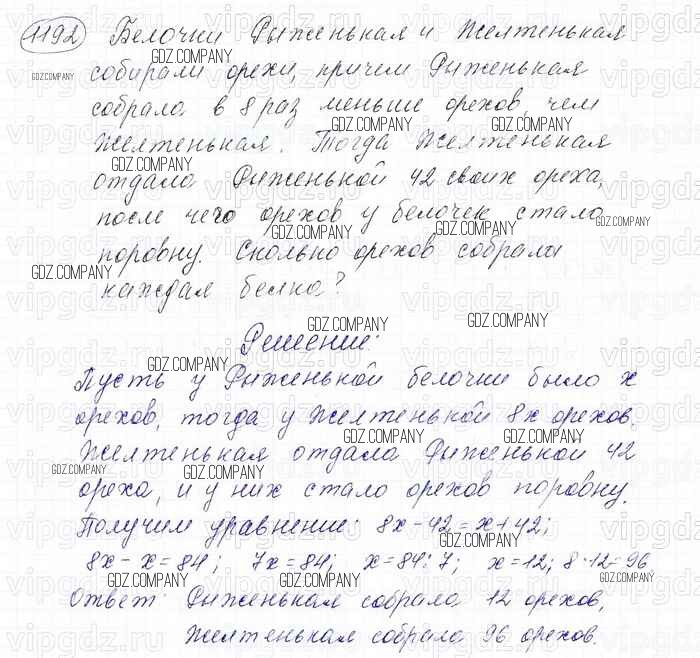 1192 Белочки Рыженькая и Желтенькая
собирали орехи, причем Рыженькая
собрала в 8 раз меньше орехов, чем
Желтенькая. Тогда Желтенькая
отдала Рыженькой 42 своих ореха,
после чего орехов у белочек стало
поровну. Сколько орехов собрала
каждая белка?
Решение:
Пусть у Рыженькой белочки было x
орехов, тогда у Желтенькой 8x орехов.
Желтенькая отдала Рыженькой 42
ореха, и у них стало орехов поровну.
Получим уравнение: 8x-42=x+42;
8x-x=84; 7x=84; x=84:7; x=12; 8·12=96
Ответ: Рыженькая собрала 12 орехов,
Желтенькая собрала 96 орехов.